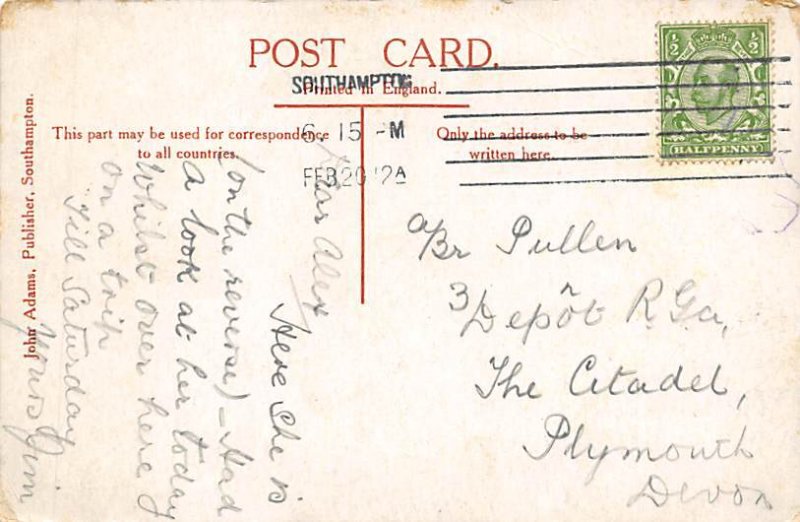 POST CARD.
SOUTHAMPTON
Printed in England.
This part may be used for correspondence
to all countries.
Only the address to be
written here.
6 15 -M
FEB 20 12A
½ ½
HALFPENNY
John Adams, Publisher, Southampton.
Dear Alex
Here she is
(on the reverse) - Had
a look at her today
Whilst over here
on a trip
Till Saturday
Yours Jim
Br Pullen
3 Depôt RGA,
The Citadel,
Plymouth
Devon